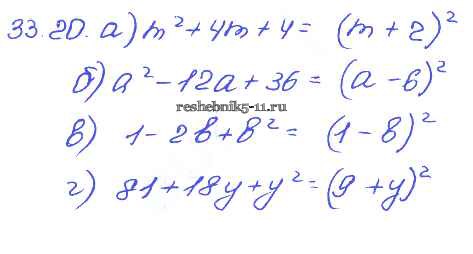 33.20. а) m² + 4m + 4 = (m + 2)²
б) a² - 12a + 36 = (a - 6)²
reshebnik5-11.ru
в) 1 - 2b + b² = (1 - b)²
г) 81 + 18y + y² = (9 + y)²